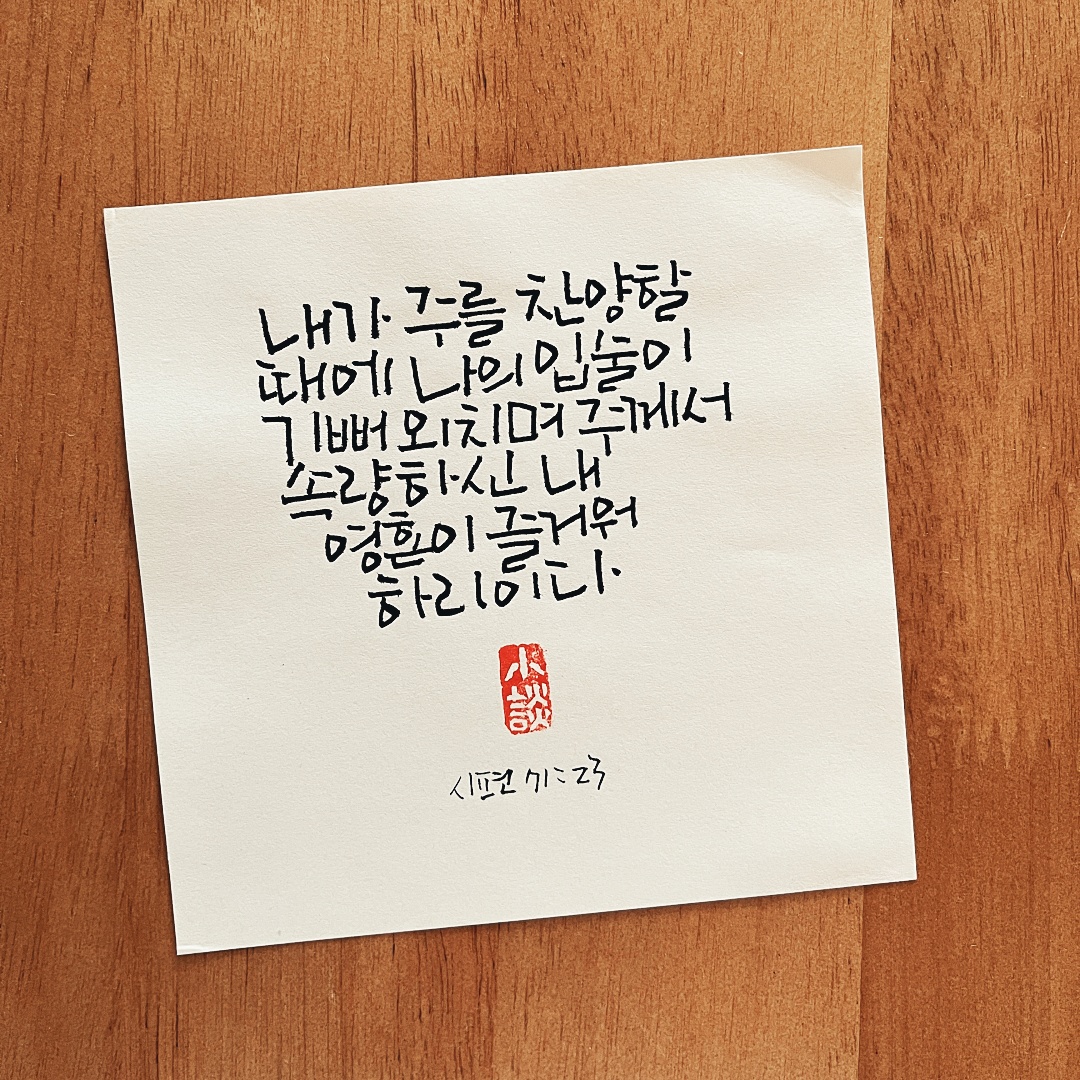 내가 주를 찬양할
때에 나의 입술이
기뻐 외치며 주께서
속량하신 내
영혼이 즐거워
하리이다.
小
談
시편 71:23